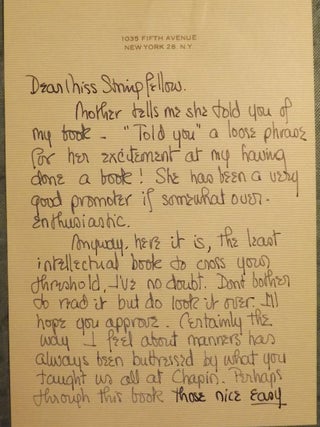 1035 FIFTH AVENUE
NEW YORK 28, N.Y.
Dear Miss Stringfellow.
Mother tells me she told you of
my book - "Told you" a loose phrase
for her excitement at my having
done a book! She has been a very
good promoter if somewhat over-
enthusiastic.
Anyway, here it is, the least
intellectual book to cross your
threshold, I've no doubt. Dont bother
to read it but do look it over. I'll
hope you approve. Certainly the
way I feel about manners has
always been buttressed by what you
taught us all at Chapin. Perhaps
through this book those nice easy